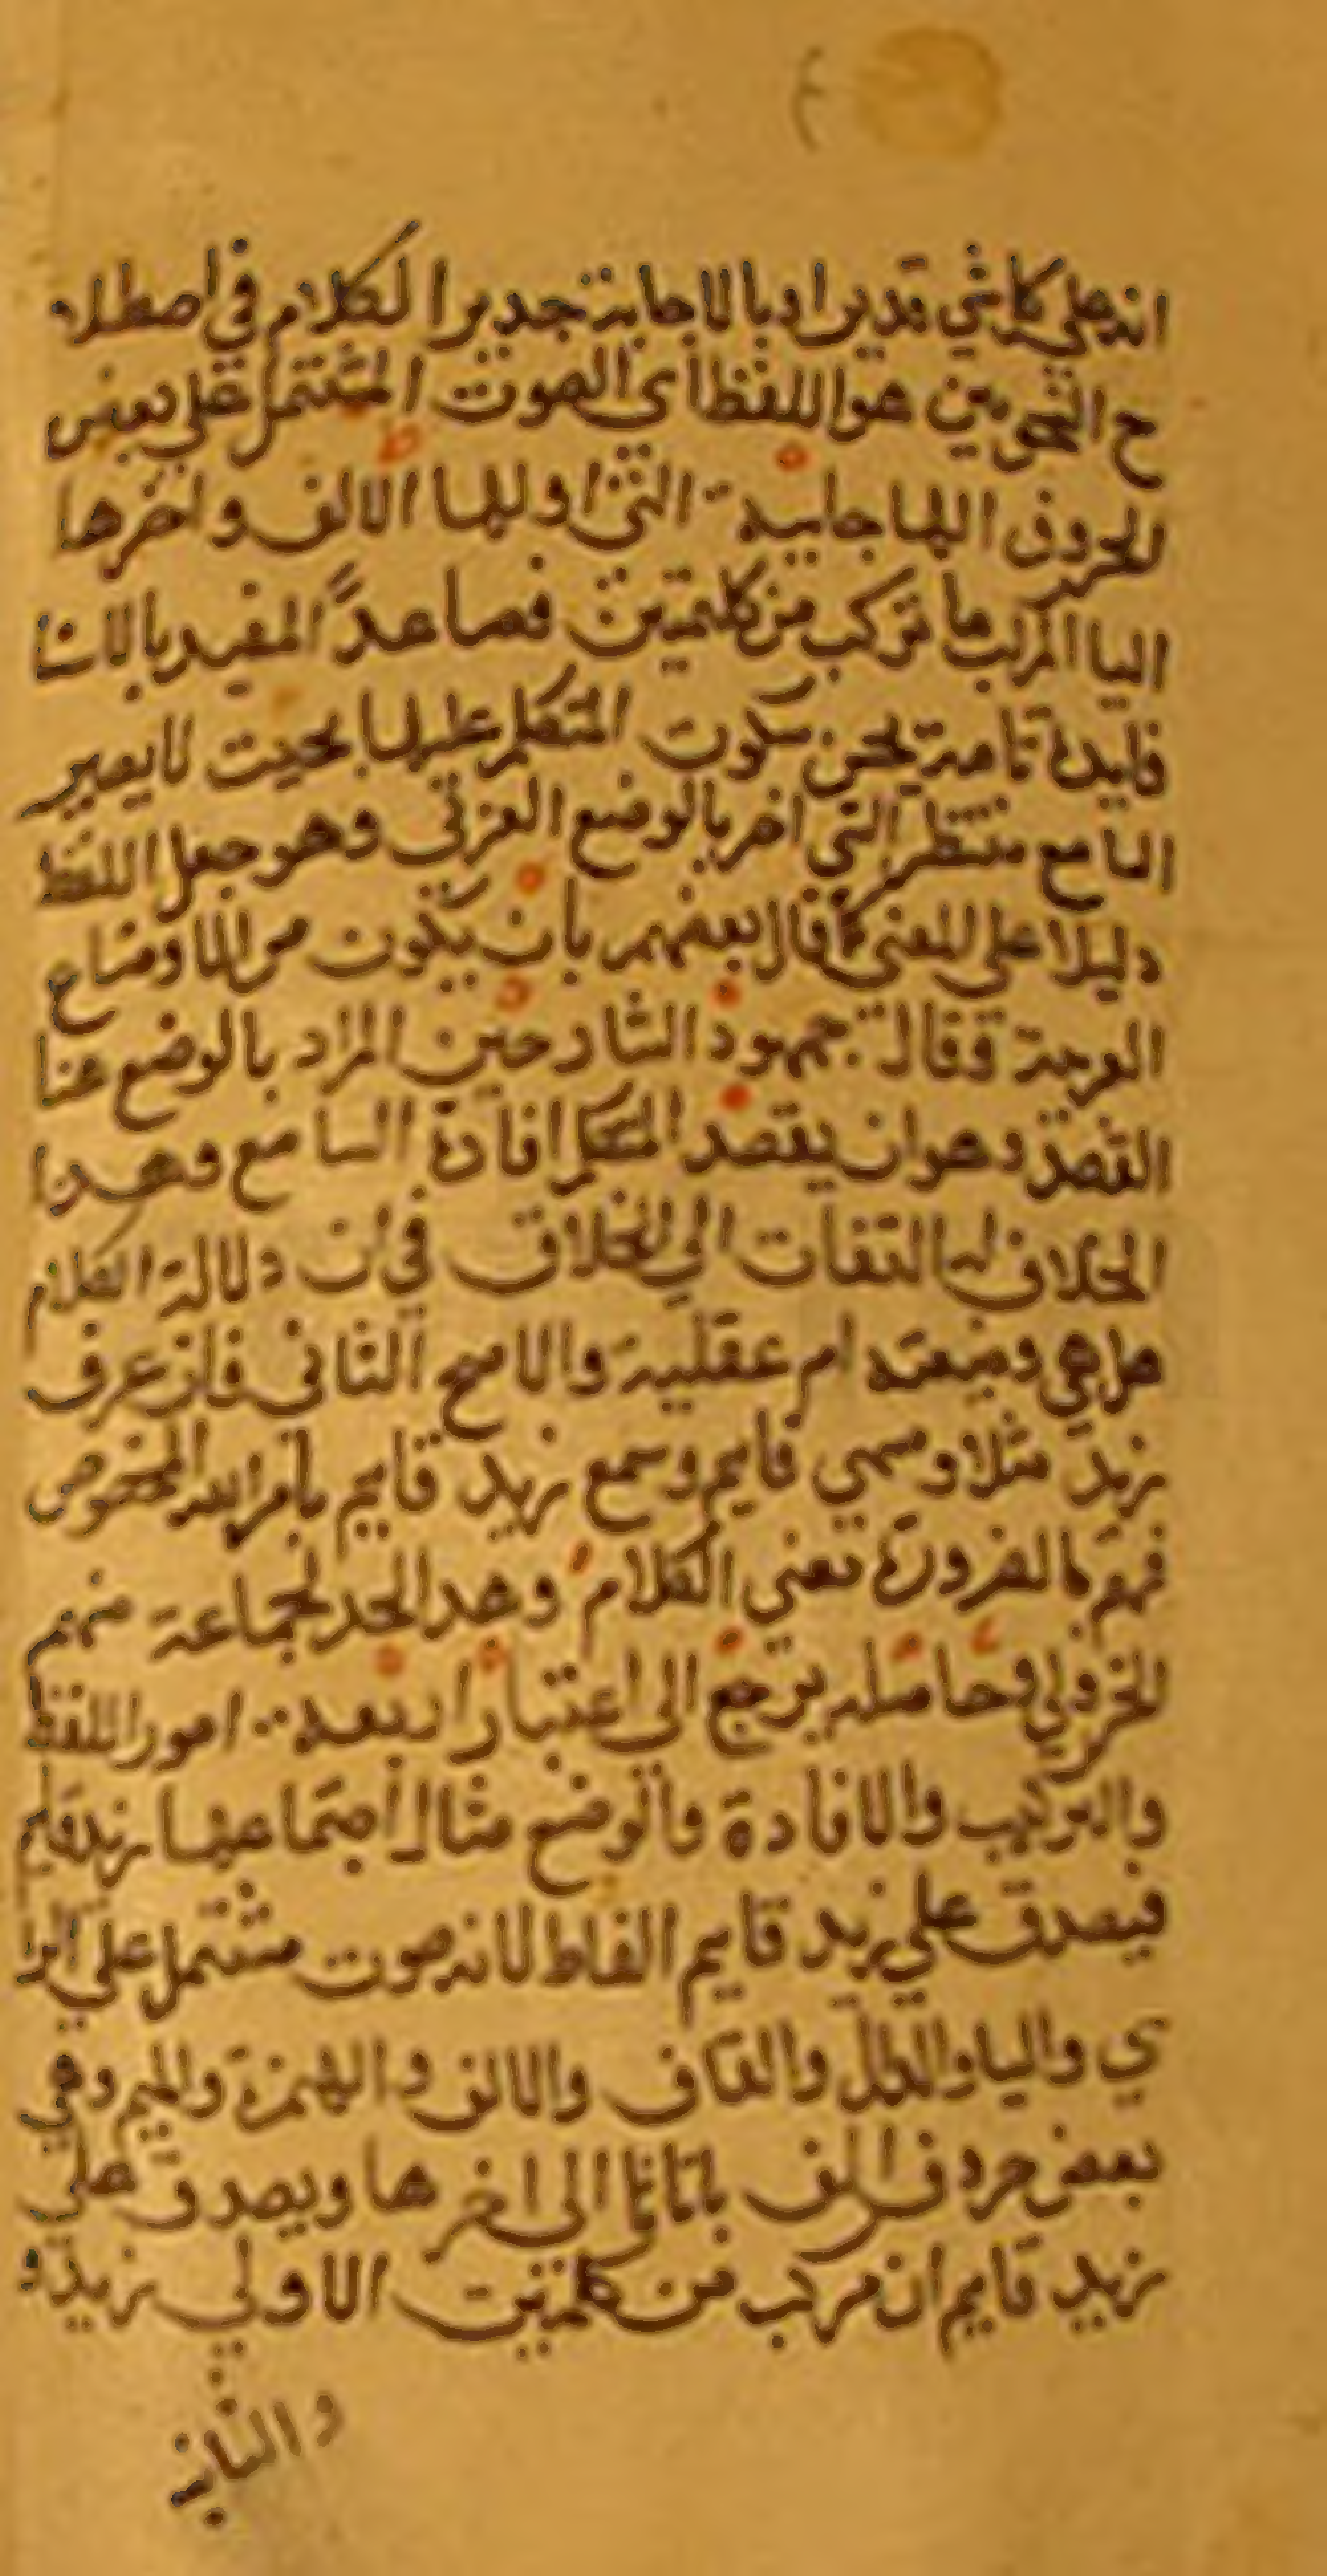 انه علي كل شي قدير اوبالاجابة جدير الكلام في اصطلا
ح النحويين هو اللفظ اي الصوت المشتمل علي بعض
الحروف الهجاىية التي اولها الالف واخرها
اليا المركب ما تركب من كلمتين فصاعداً المفيد بالاسنا
فايدة تامة يحسن سكوت المتكلم عليها بحيث لايصير
السامع منتظر التي اخر بالوضع العربي وهو جعل اللفظ
دليلا علي المعني كما قال بعضهم بان يكون من الاوضاع
العربية وقال جمهور الشارحين المراد بالوضع هنا
القصد وهو ان يقصد المتكلم افادة السامع وهدا
الخلاف له التفات الي الخلاف في ان دلالة الكلام
هل هي وضعية ام عقلية والاصح الثاني فان عرف
زيد مثلا ومسمي قايم وسمع زيد قايم باعرابه المخصوص
فهم بالضرورة معني الكلام وهدا الحد لجماعة منهم
الجزولي وحاصله يرجع الي اعتبار اربعة امور اللفظ
والتركيب والافادة والوضع مثال اجتماعها زيد قايم
فيصدق علي زيد قايم الفاظ لانه صوت مشتمل علي الزا
ي واليا والدال والقاف والالف والهمزة والميم وهي
بعض حروف الف باتاثا الي اخرها ويصدق علي
زيد قايم ان مركب من كلمتين الاولي زيد و
والثانية